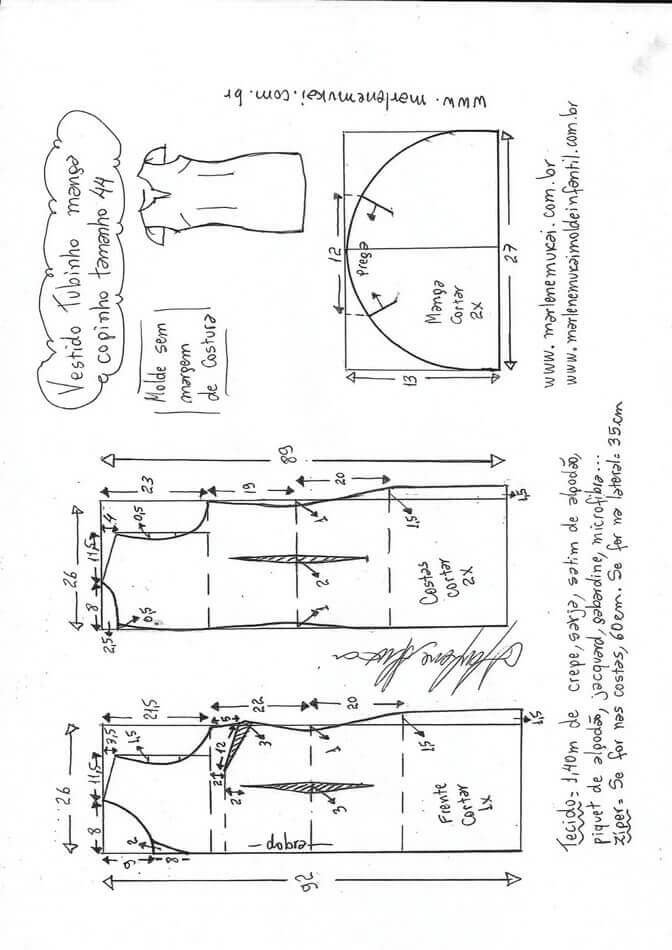 www.marlenemukai.com.br
Vestido Tubinho manga
copinho tamanho 44
Molde sem
margem
de Costura
12
Prega
Manga
Cortar
2x
27
13
www.marlenemukai.com.br
www.marlenemukaimoldeinfantil.com.br
89
23
19
20
26
11,5
8
4
0,5
2,5
0,5
1
2
1
1,5
1,5
Costas
cortar
2x
92
21,5
22
20
26
11,5
8
3,5
1,5
5
12
3
2
2
2
9
8
1
3
1,5
1,5
dobra
Frente
Cortar
1x
Tecido= 1,40m de crepe, sarja, satim de algodão,
piquet de algodão, jacquard, gabardine, microfibra...
Zíper= Se for nas costas, 60cm. Se for na lateral= 35cm